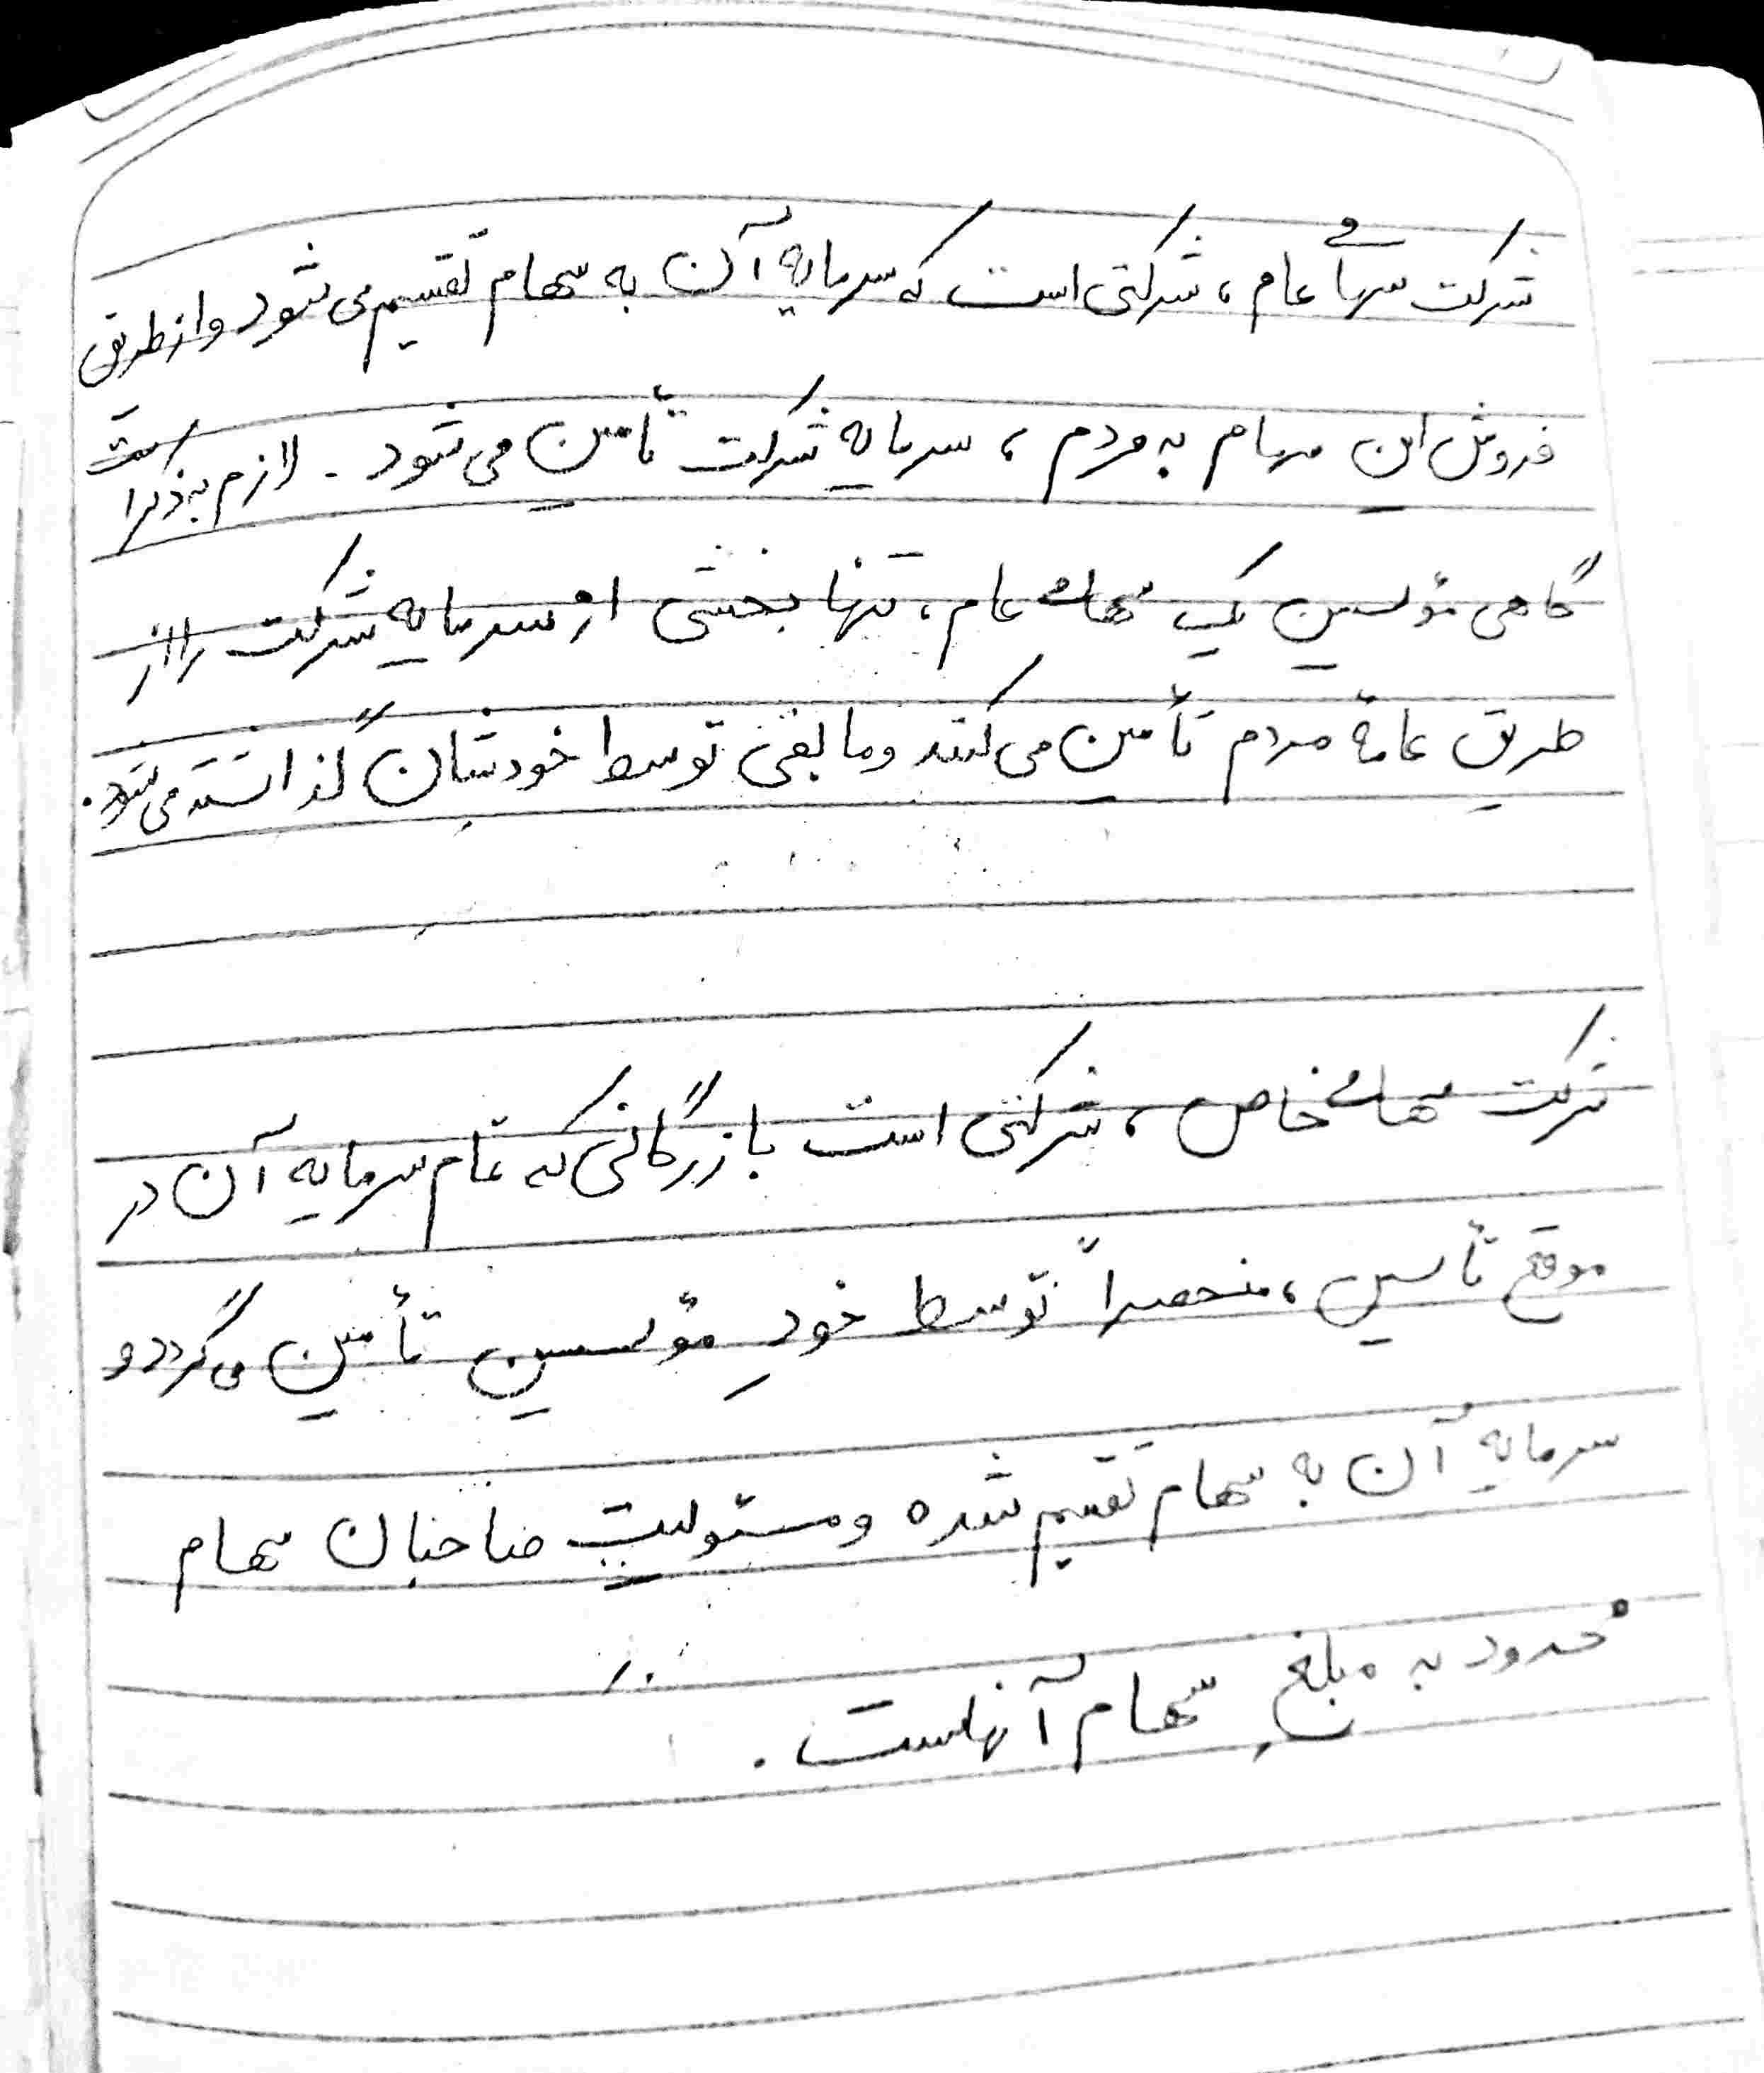 شرکت سهامی عام، شرکتی است که سرمایه آن به سهام تقسیم می شود و از طریق
فروش این سهام به مردم، سرمایهٔ شرکت تأمین می شود. لازم به ذکر است
گاهی مؤسسین یک سهامی عام، تنها بخشی از سرمایه شرکت را از
طریق عامهٔ مردم تأمین می کنند و مابقی توسط خودشان گذاشته می شود.
شرکت سهامی خاص، شرکتی است بازرگانی که تمام سرمایه آن در
موقع تأسیس، منحصراً توسط خودِ مؤسسین تأمین می گردد و
سرمایه آن به سهام تقسیم شده و مسئولیت صاحبان سهام
محدود به مبلغ سهام آنهاست.